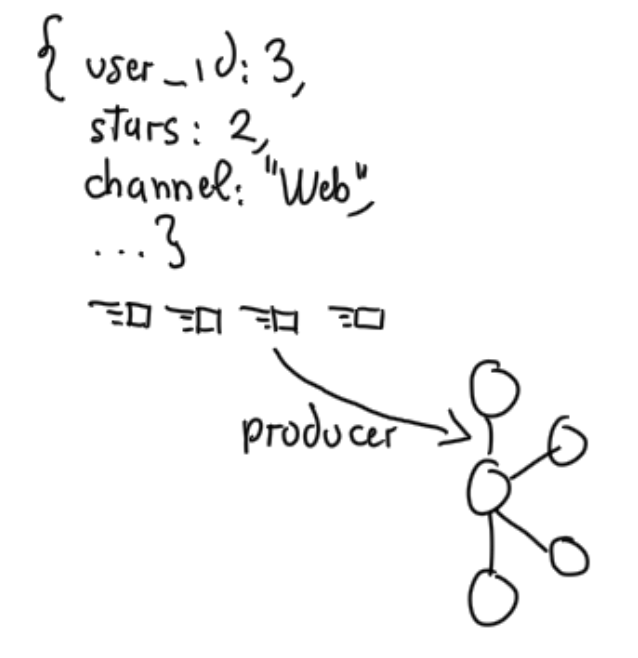 { user_id: 3,
stars: 2,
channel: "Web",
...}
producer